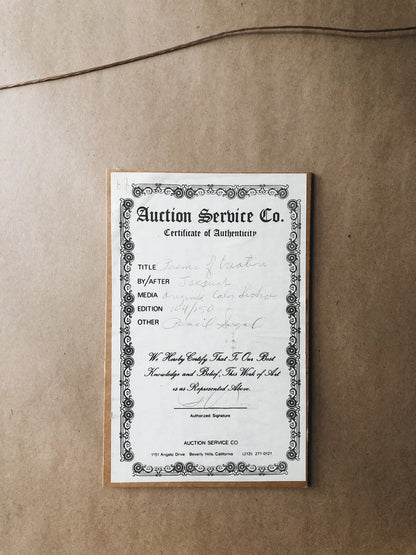 Auction Service Co.
Certificate of Authenticity
TITLE Poems of Creation
BY/AFTER
MEDIA Original Color
EDITION 104/250
OTHER Pencil Signed
We Hereby Certify That To Our Best
Knowledge and Belief, This Work of Art
is as Represented Above.
Authorized Signature
AUCTION SERVICE CO
1151 Angelo Drive Beverly Hills, California (213) 271-0121